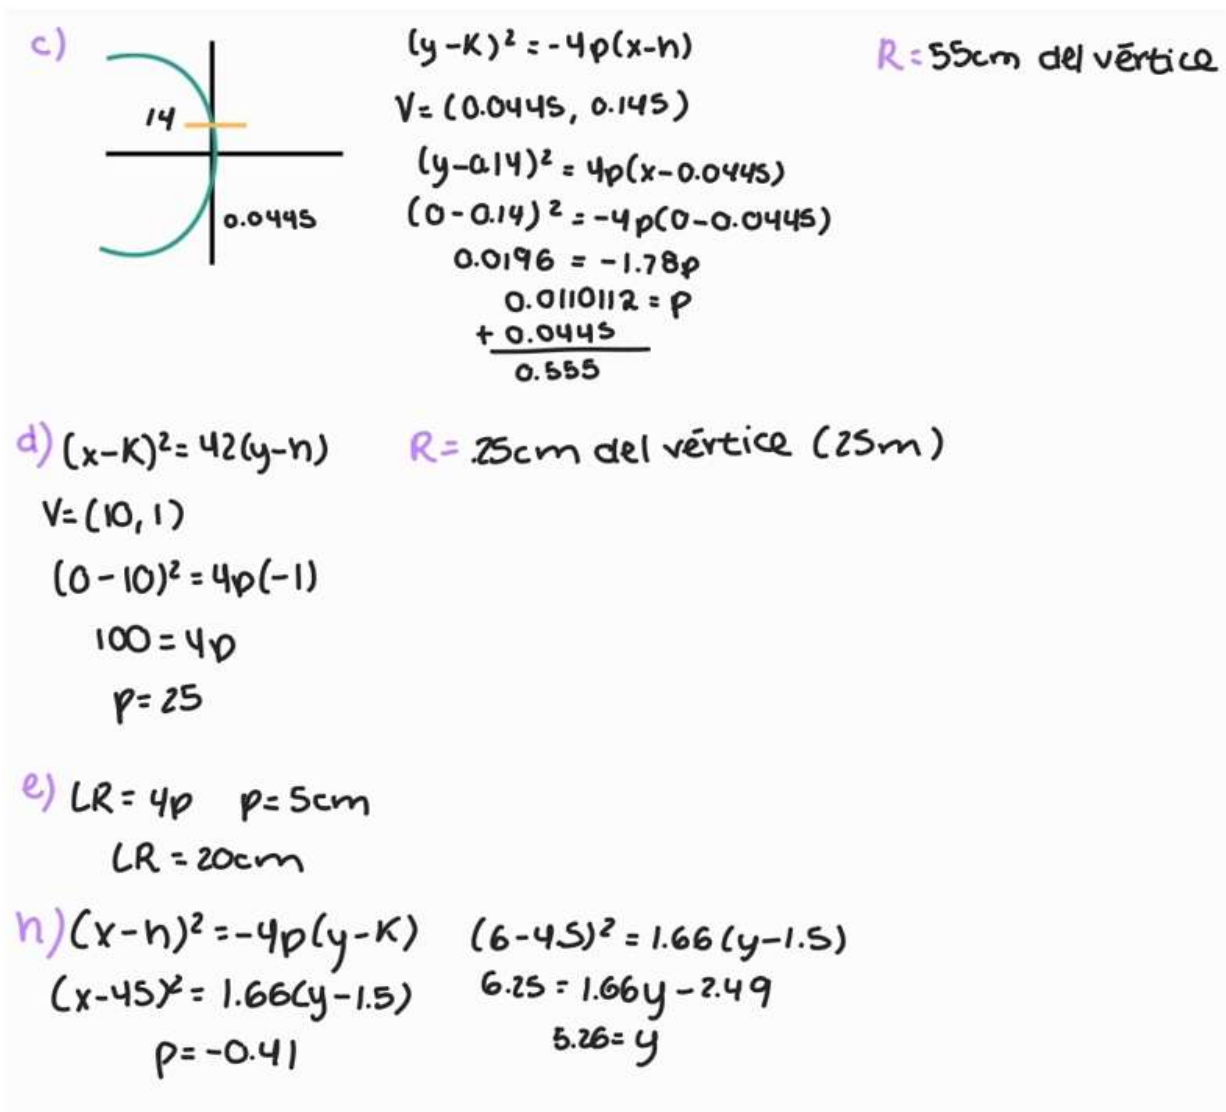 c)
14
0.0445
(y-K)² = -4p(x-h)
V= (0.0445, 0.145)
(y-0.14)² = 4p(x-0.0445)
(0-0.14)² = -4p(0-0.0445)
0.0196 = -1.78p
0.0110112 = p
+ 0.0445
0.555
R= 55cm del vértice
d) (x-K)² = 42(y-h)
R= .25cm del vértice (25m)
V= (10, 1)
(0-10)² = 4p(-1)
100 = 4p
p= 25
e) LR= 4p p= 5cm
LR = 20cm
h) (x-h)² = -4p(y-K)
(x-45)² = 1.66(y-1.5)
p= -0.41
(6-4.5)² = 1.66(y-1.5)
6.25 = 1.66y - 2.49
5.26 = y